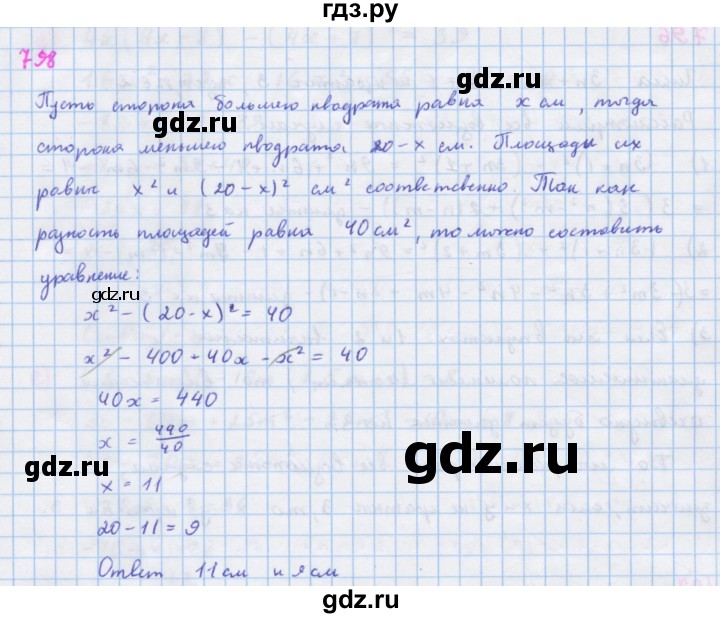 гдз.ру
798
Пусть сторона большего квадрата равна x см, тогда
сторона меньшего квадрата 20-x см. Площады их
равны x² и (20-x)² см² соотвественно. Так как
разность площадей равна 40см², то можно составить
уравнение:
gdz.ru
x² - (20-x)² = 40
gdz.ru
x² - 400 + 40x - x² = 40
40x = 440
x = 440/40
gdz.ru
gdz.ru
x = 11
20-11=9
Ответ 11см и 9см
gdz.ru
gdz.ru